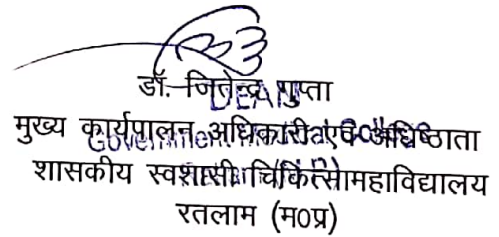 डॉ. जितेन्द्र गुप्ता
DEAN
मुख्य कार्यपालन अधिकारी एवं अधिष्ठाता
Government
शासकीय स्वशासी चिकित्सा महाविद्यालय
रतलाम (म०प्र)